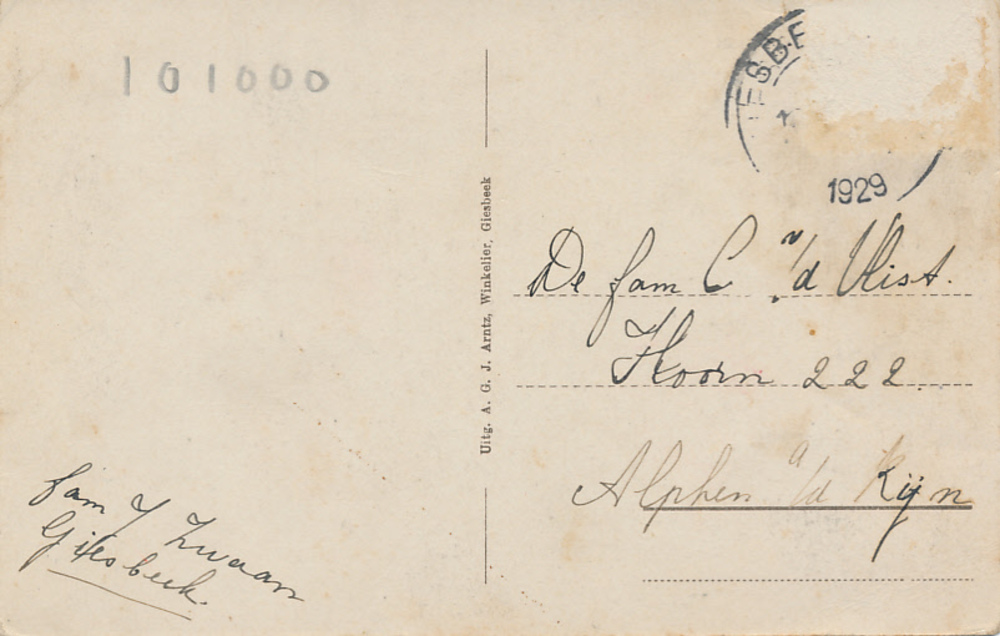 101000
ESBE
1929
De fam C v/d Vlist.
Hoorn 222.
Alphen a/d Rijn
Uitg. A. G. J. Arntz, Winkelier, Giesbeek
fam J Zwaan
Giesbeek.